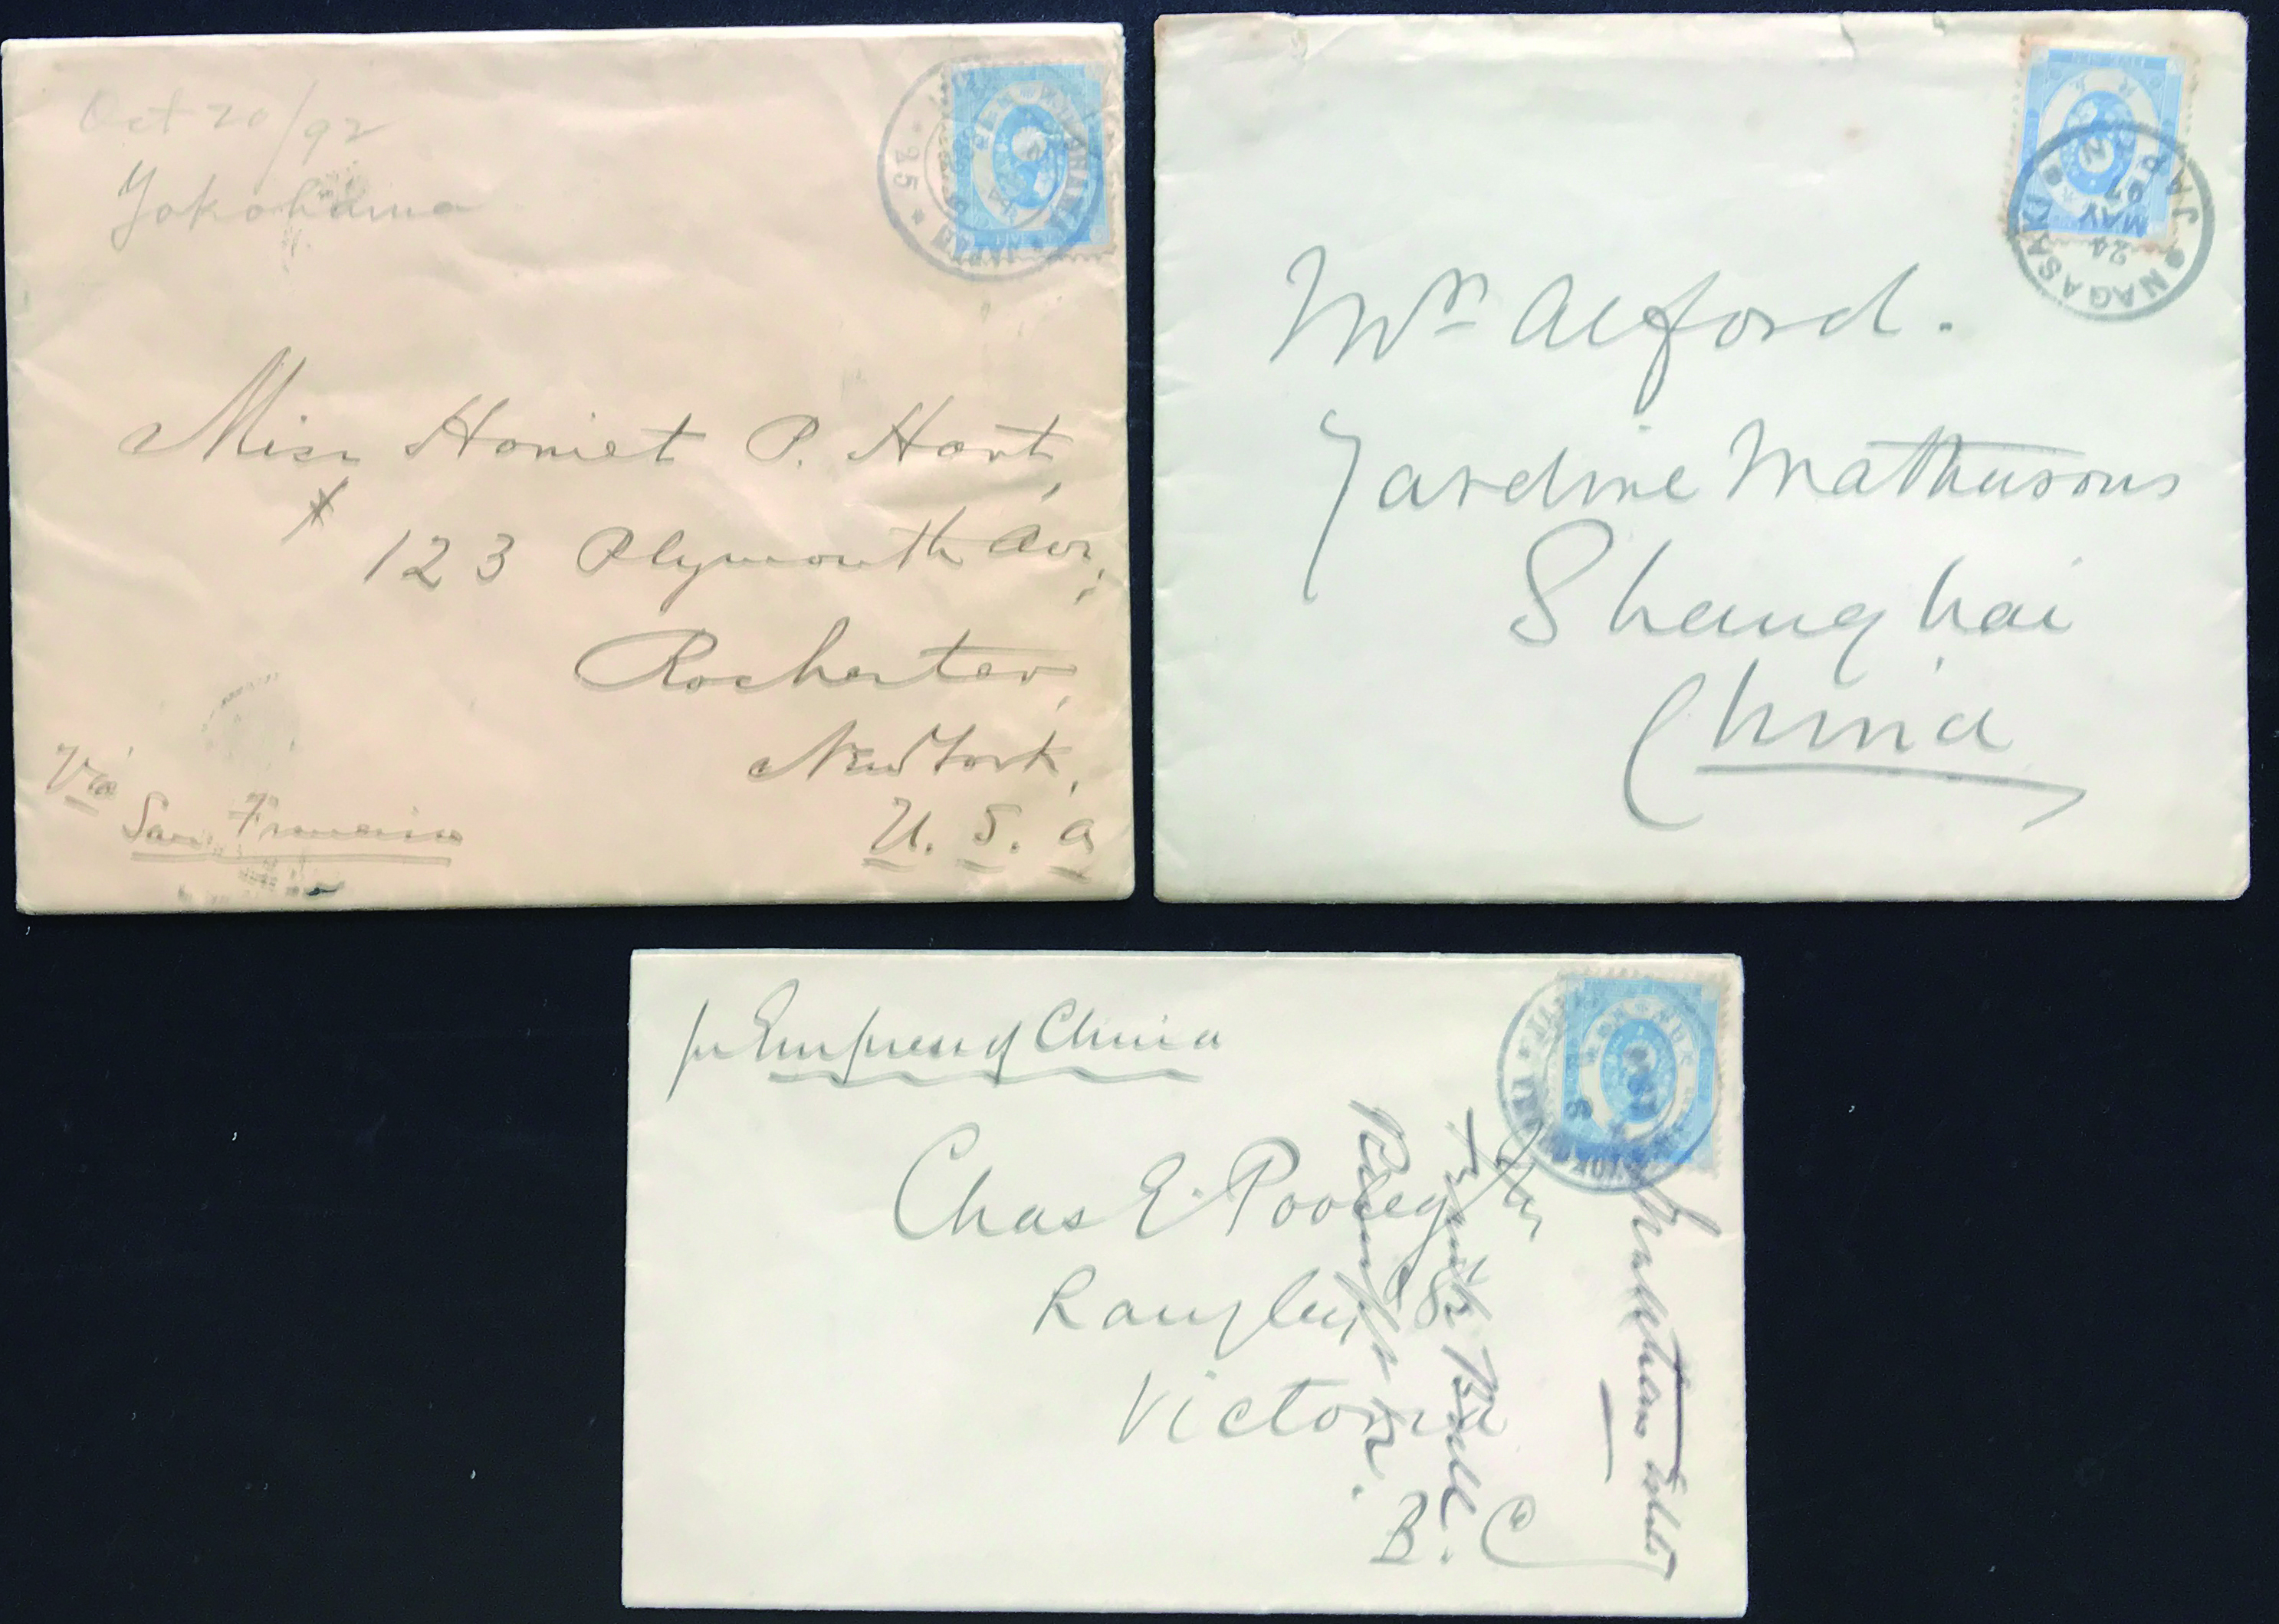 Oct 20/92
Yokohama
Miss Harriet P. Hart,
123 Plymouth Ave,
Rochester,
New York,
U. S. A
Via
San Francisco
25
JAPAN
Mrs Alford.
Jardine Mathesons
Shanghai
China
NAGASAKI
JAPAN
24
MAY
97
pr Empress of China
Chas E. Pooley
St
Victoria
B. C